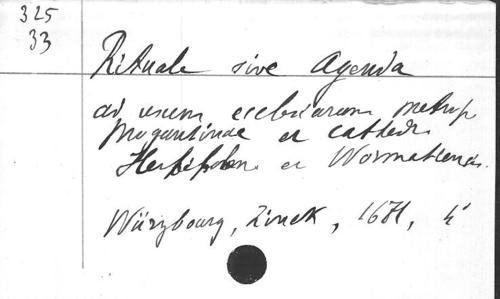 325
33
Rituale sive Agenda
ad usum ecclesiarum metrop
Moguntinae et cathedr.
Herbipolen. et Wormatiensis.
Würzbourg, Zinck, 1671, 4°